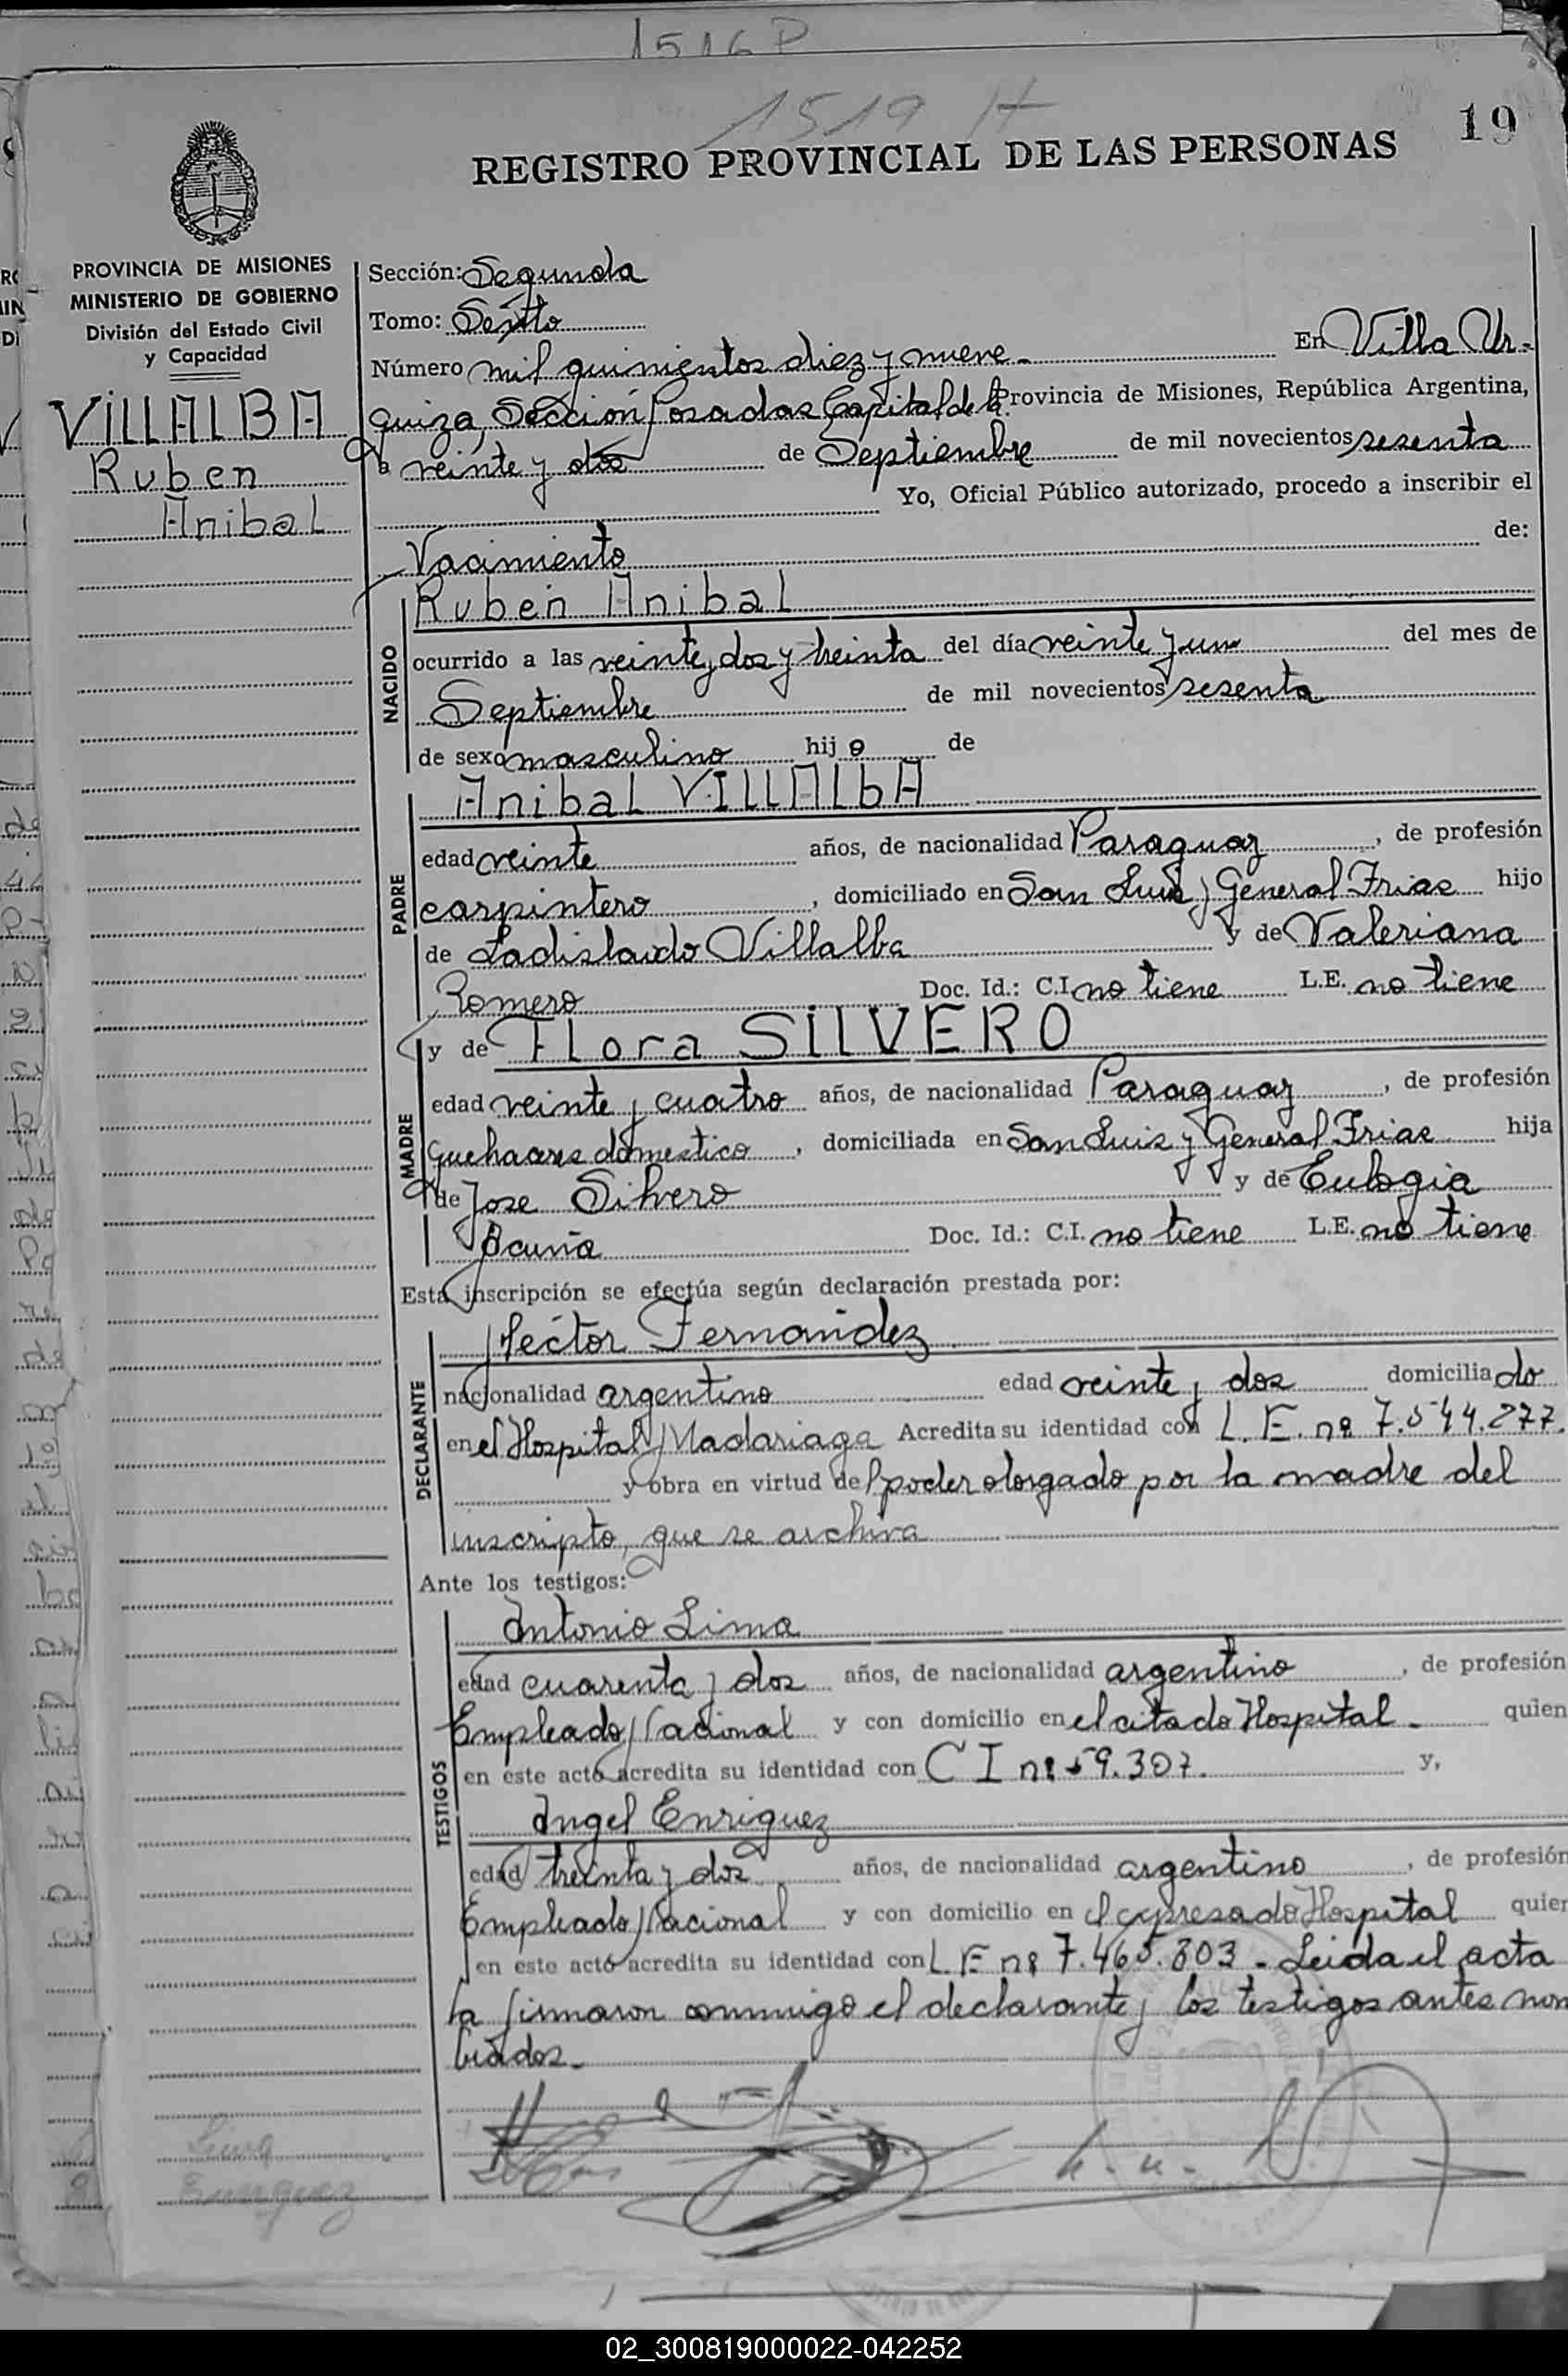 1516 P
1519 H
19
REGISTRO PROVINCIAL DE LAS PERSONAS
PROVINCIA DE MISIONES
MINISTERIO DE GOBIERNO
División del Estado Civil
y Capacidad
VILLALBA
Ruben
Anibal
Sección: Segunda
Tomo: Sexto
Número mil quinientos diez y nueve - En Villa Ur-
quiza, Sección Posadas Capital de la Provincia de Misiones, República Argentina,
a veinte y dos de Septiembre de mil novecientos sesenta
Yo, Oficial Público autorizado, procedo a inscribir el
Nacimiento de:
NACIDO
Ruben Anibal
ocurrido a las veinte y dos y treinta del día veinte y un del mes de
Septiembre de mil novecientos sesenta
de sexo masculino hijo de
PADRE
Anibal VILLALbA
edad veinte años, de nacionalidad Paraguay, de profesión
carpintero, domiciliado en San Luis y General Frias hijo
de Ladislado Villalba y de Valeriana
Romero Doc. Id.: C.I. no tiene L.E. no tiene
MADRE
y de Flora SILVERO
edad veinte y cuatro años, de nacionalidad Paraguay, de profesión
quehaceres domestico, domiciliada en San Luis y General Frias hija
de Jose Silvero y de Eulogia
Acuña Doc. Id.: C.I. no tiene L.E. no tiene
Esta inscripción se efectúa según declaración prestada por:
DECLARANTE
Héctor Fernandez
nacionalidad argentino edad veinte y dos domiciliado
en el Hospital Madariaga Acredita su identidad con L. E. nº 7.544.277.
y obra en virtud del poder otorgado por la madre del
inscripto, que se archiva
Ante los testigos:
TESTIGOS
Antonio Lima
edad cuarenta y dos años, de nacionalidad argentino, de profesión
Empleado Nacional y con domicilio en el citado Hospital - quien
en este acto acredita su identidad con C I nº 59.307. y,
Angel Enriquez
edad treinta y dos años, de nacionalidad argentino, de profesión
Empleado Nacional y con domicilio en el expresado Hospital quien
en este acto acredita su identidad con L. E nº 7.465.803 - Leida el acta
la firmaron conmigo el declarante y los testigos antes nom
brados -
Lima
Enriquez
02_300819000022-042252